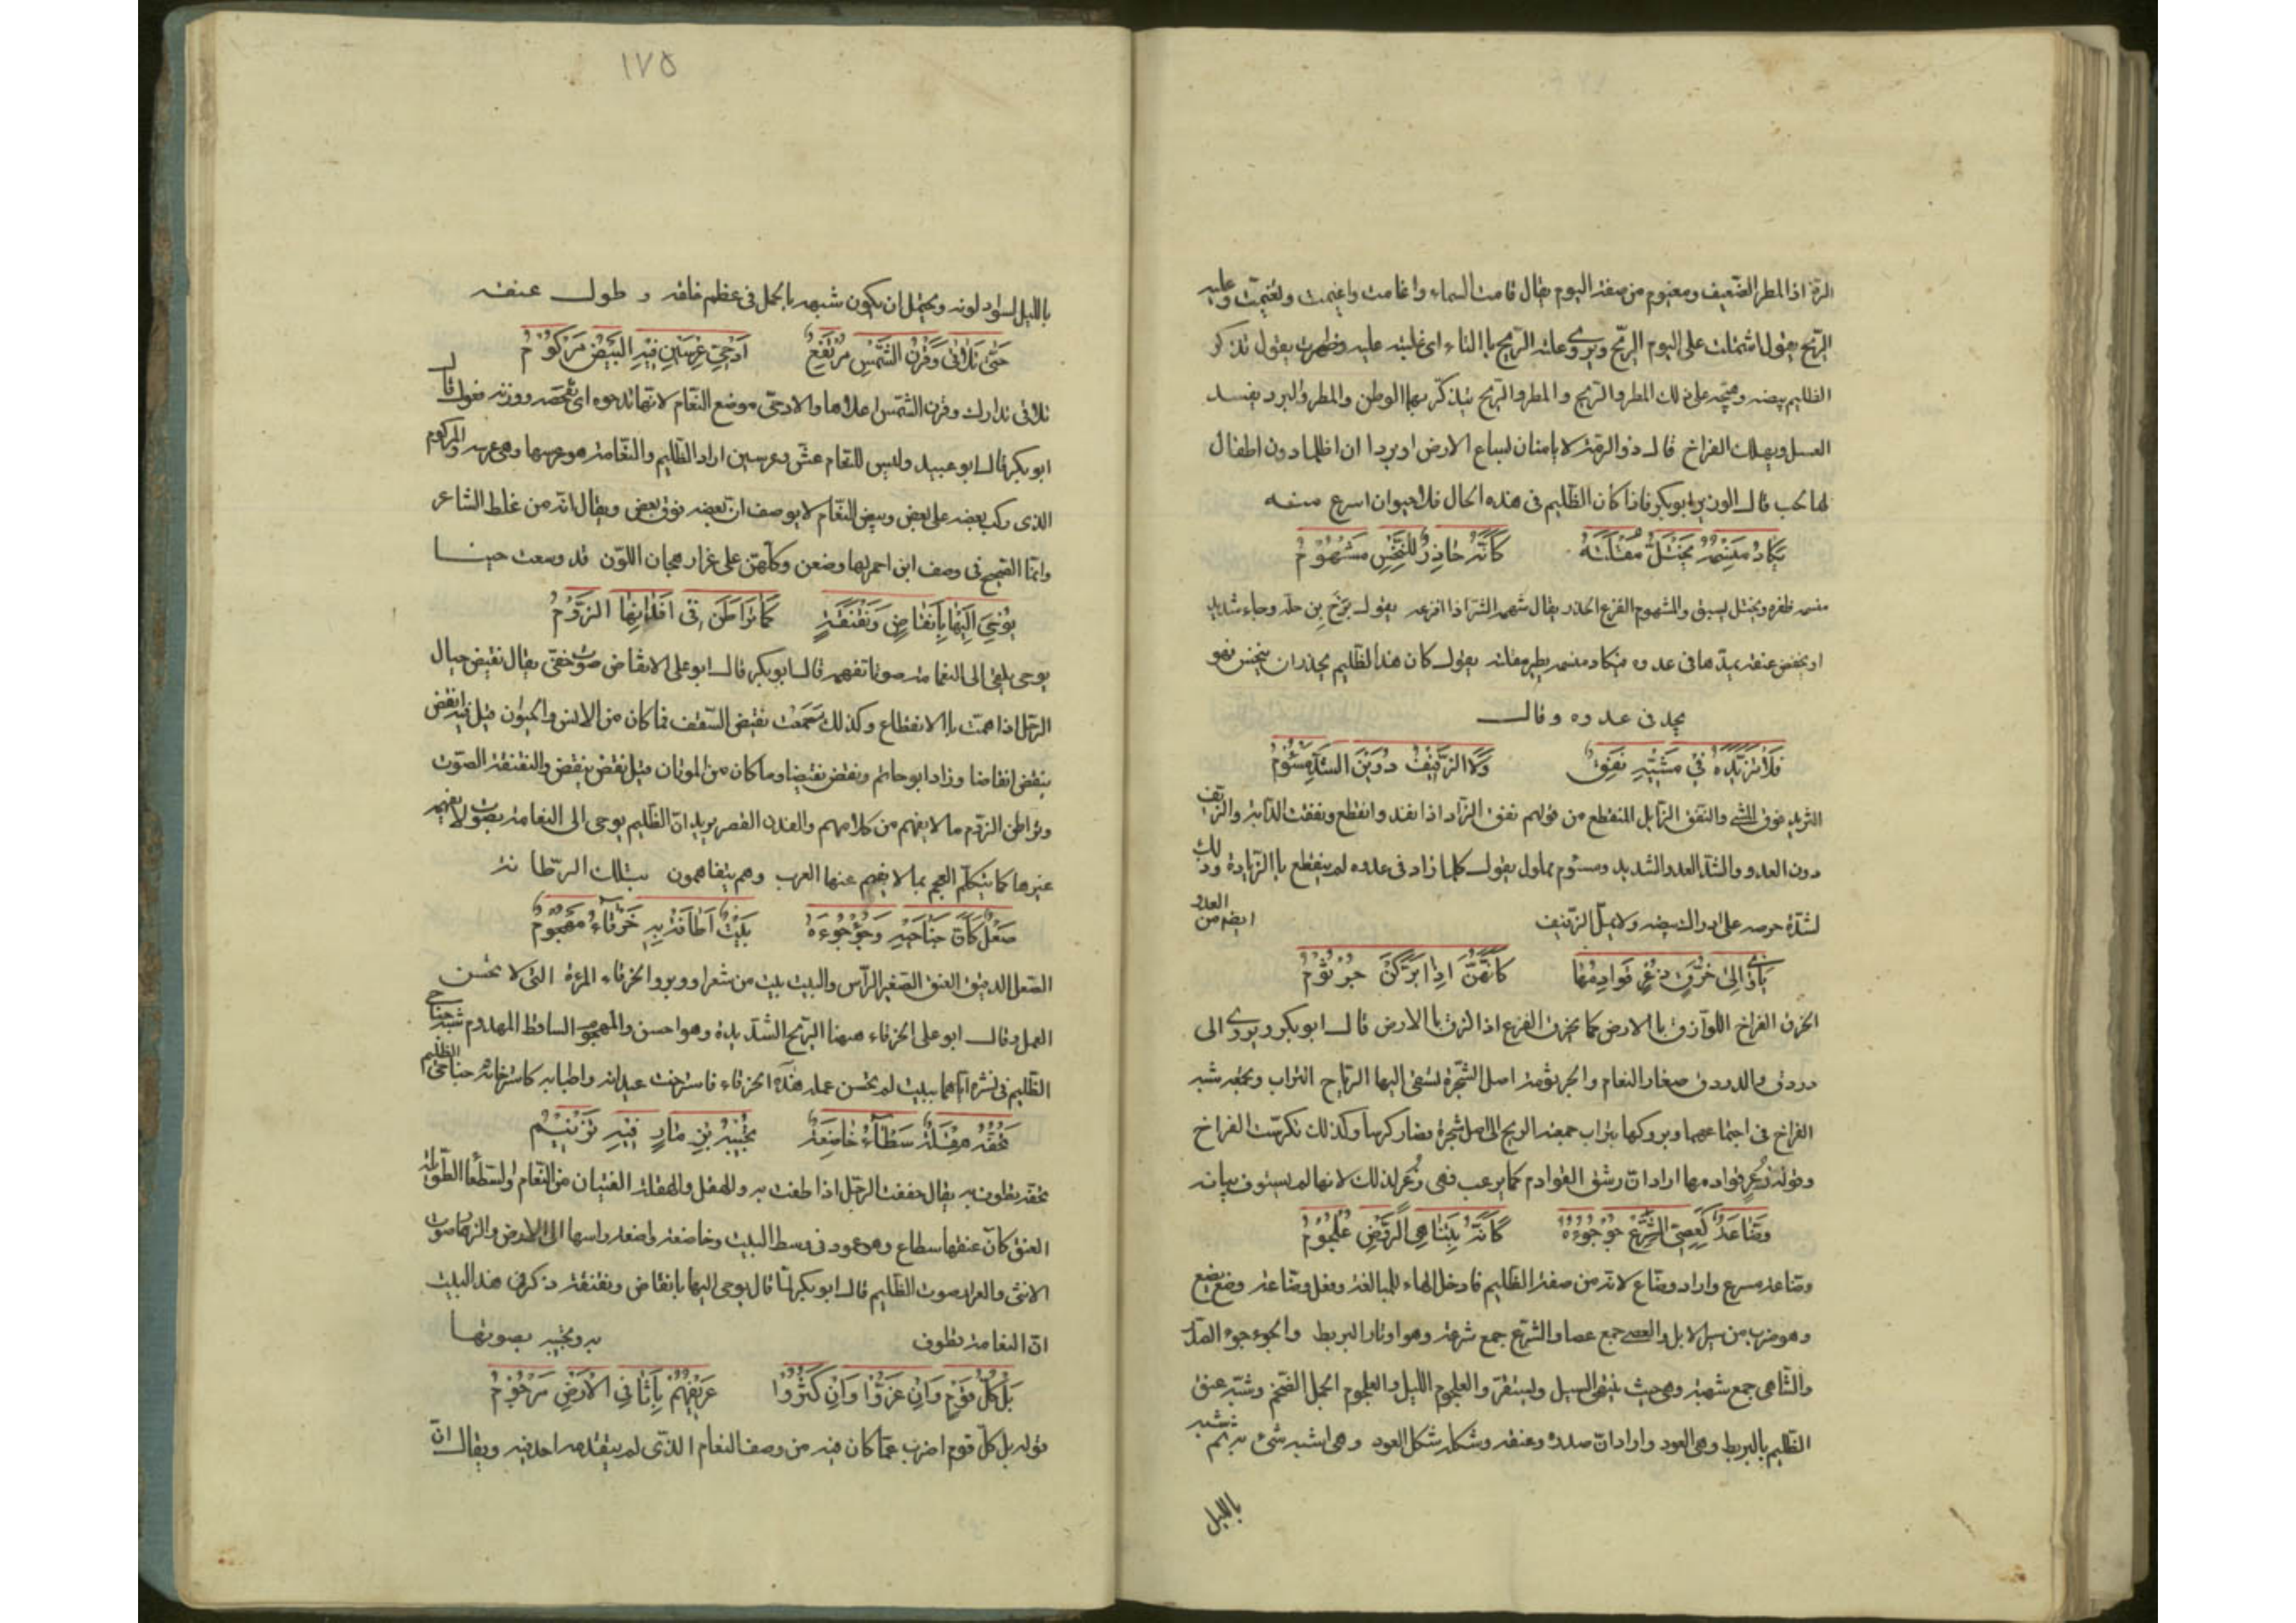 الرذاذ المطر الضعيف ومغيوم من صفة اليوم يقال غامت السماء واغامت واغيمت وتغيمت وعليه
الريح يقول اشتملت على اليوم الريح ويروى علته الريح باالتاء اى غلبته عليه وظهرت يقول تذكر
الظليم بيضه وهيجه على ذلك المطر والريح و المطر والريح يذكر بهاالوطن والمطر والبرد يفسد
العسل ويهلك الفراخ قال ذو الرمة لا يامنان لسباع الارض او بردا ان اظلما دون اطفال
لها لجب قال الوزير ابو بكر فاذا كان الظليم فى هذه الحال فلا حيوان اسرع منه
يَكادُ مَنْسِمُهُ يَخْتَلُّ مُقْلَتَهُ كَأَنَّهُ حَاذِرٌ لِلنَّخْسِ مَشْهُوْمُ
منسمه ظفره ويختل يسبق والمشهوم الفزع الحذر يقال شهمه الشر اذا افزعه يقول يزج بن حله وجاء شديد
او يخفض عنقه يمدها فى عدوه فيكاد منسمه يطير مقلته يقول كان هذا الظليم يحذر ان ينخس فهو
يجد فى عدوه وقال
فَلَا تَزَيُّدُهُ فِيْ مَشْيِهِ نَفِقٌ وَلَا الزَّفِيْفُ دُوَيْنَ الشَّدِّ مَسْئُوْمُ
التزيد فوق المشى والنفق الزايل المنقطع من قولهم نفق الزاد اذا نفد وانقطع ونفقت الدابة والزفيف
دون العدو والشد العدو الشديد ومسئوم مملول يقول كلما زاد فى عدوه لم ينقطع باالزيادة وذلك
لشدة حرصه على ادراك بيضه ولا يمل الزفيف ايضا من العدو
يَأْوِىْ إِلَىٰ خُرَّقٍ زُعْرٍ قَوَادِمُهَا كَأَنَّهُنَّ اِذَا بَرَّكْنَ جُرْثُوْمُ
الخرق الفراخ اللوازق باالارض كما يخرق الفزع اذا لزق باالارض قال ابو بكر ويروى الى
دردق والدردق صغار النعام والجرثومة اصل الشجرة تسفى اليها الرياح التراب وتجمعه شبه
الفراخ فى اجتماعهما وبروكها بتراب جمعته الريح الى اصل شجرة فصار كرسا وكذلك تكرست الفراخ
وقوله زعر قوادمها اراد ان ريش القوادم كما يزغب فهى زعر لذلك لانها لم يستوف نباته
وَضَّاعَةٌ كَعِصِيِّ الشِّرْعِ جُؤْجُؤُهُ كَأَنَّهُ بِتَنَاهِى الرَّوْضِ عُلْجُوْمُ
وضاعة مسرع واراد وضاع لانه من صفة الظليم فادخل الهاء للمبالغة وفعل وضاعة وضع يضع
وهو ضرب من سير الابل والعصى جمع عصا والشرع جمع شرعة وهو اوتار البربط والجؤجؤ الصدر
والتناهى جمع تنهية وهى حيث ينتهى السيل ويستقر والعلجوم الليل والعلجوم الجمل الضخم وشبه عنق
الظليم بالبربط وهى العود واراد ان صدره وعنقه وشكله شكل العود وهى اشبه شئ به ثم شبه
بالليل
١٧٥
بالليل لسواد لونه ويحتمل ان يكون شبهه بالجمل فى عظم خلقه و طول عنقه
حَتّٰى تَلَافٰى وَقَرْنُ الشَّمْسِ مُرْتَفِعٌ اُدْحِيَّ عِرْسَيْنِ فِيْهِ الْبَيْضُ مَرْكُوْمُ
تلافى تدارك وقرن الشمس اعلاها والادحى موضع النعام لانها تدحوه اى تفحصه ووزنه مفعول قال
ابو بكر قال ابو عبيد وليس للنعام عش وعرسين اراد الظليم والنعامة هو عرسها وهى عرسه والمركوم
الذى ركب بعضه على بعض وبيض النعام لا يوصف ان بعضه فوق بعض ويقال انه من غلط الشاعر
وانما الصحيح فى وصف ابن احمر بها وضعن وكلهن على غرار هجان اللون قد وسعت حينا
يُوْحِيْ اِلَيْهَا بِاَنْقَاضٍ وَنَقْنَقَةٍ كَمَا تَرَاطَنُ فِى اَفْدَانِهَا الرُّوْمُ
يوحى يلقى الى النعامة صوتا تفهمه قال ابو بكر قال ابو على الانقاض صوت خفى يقال نقيض حبال
الرحل اذا همت باالانقطاع وكذلك سمعت نقيض السقف فما كان من الانس والحيوان قيل فيه انقض
ينقض انقاضا وزاد ابو حاتم ونقض نقيضا وما كان من الموتان قيل نقض ينقض والنقنقة الصوت
وتراطن الروم ما لا يفهم من كلامهم والفدن القصر يريد ان الظليم يوحى الى النعامة بصوت لا يفهمه
غيرها كما يتكلم العجم بما لا يفهم عنها العرب وهم يتفاهمون بتلك الرطانة
صَعْلٌ كَأَنَّ جَنَاحَيْهِ وَجُؤْجُؤَهُ بَيْتٌ اَطَافَتْ بِهِ خَرْقَاءُ مَهْجُوْمُ
الصعل الدقيق العنق الصغير الرأس والبيت بيت من شعر او وبر والخرقاء المرءة التى لا تحسن
العمل وقال ابو على الخرقاء ههنا الريح الشديدة وهو احسن والمهجوم الساقط المهدوم شبه جناحى
الظليم فى نشره اياهما ببيت لم تحسن عمله هذه الخرقاء فاسترخت عيدانه واطنابه كاسترخائه جناحى الظليم
تَحُفُّهُ هِقْلَةٌ سَطْعَآءُ خَاضِعَةٌ تُجِيْبُهُ بِزِمَارٍ فِيْهِ تَرْنِيْمُ
تحفه تطوف به يقال حففت الرجل اذا طفت به والهقل والهقلة الفتيان من النعام والسطعاء الطويلة
العنق كان عنقها سطاع وهو عمود فى وسط البيت وخاضعة واضعة راسها الى الارض والزمار صوت
الانثى والعرار صوت الظليم قال ابو بكر لما قال يوحى اليها بانقاض ونقنقة ذكر فى هذا البيت
ان النعامة تطوف به وتجيبه بصوتها
بَلْ كُلُّ قَوْمٍ وَاِنْ عَزُّوْا وَاِنْ كَثُرُوْا عَرِيْفُهُمْ بِأَثَافِى الْاَرْضِ مَرْجُوْمُ
قوله بل كل قوم اضرب عما كان فيه من وصف النعام الذى لم يتقدمه احد فيه ويقال ان